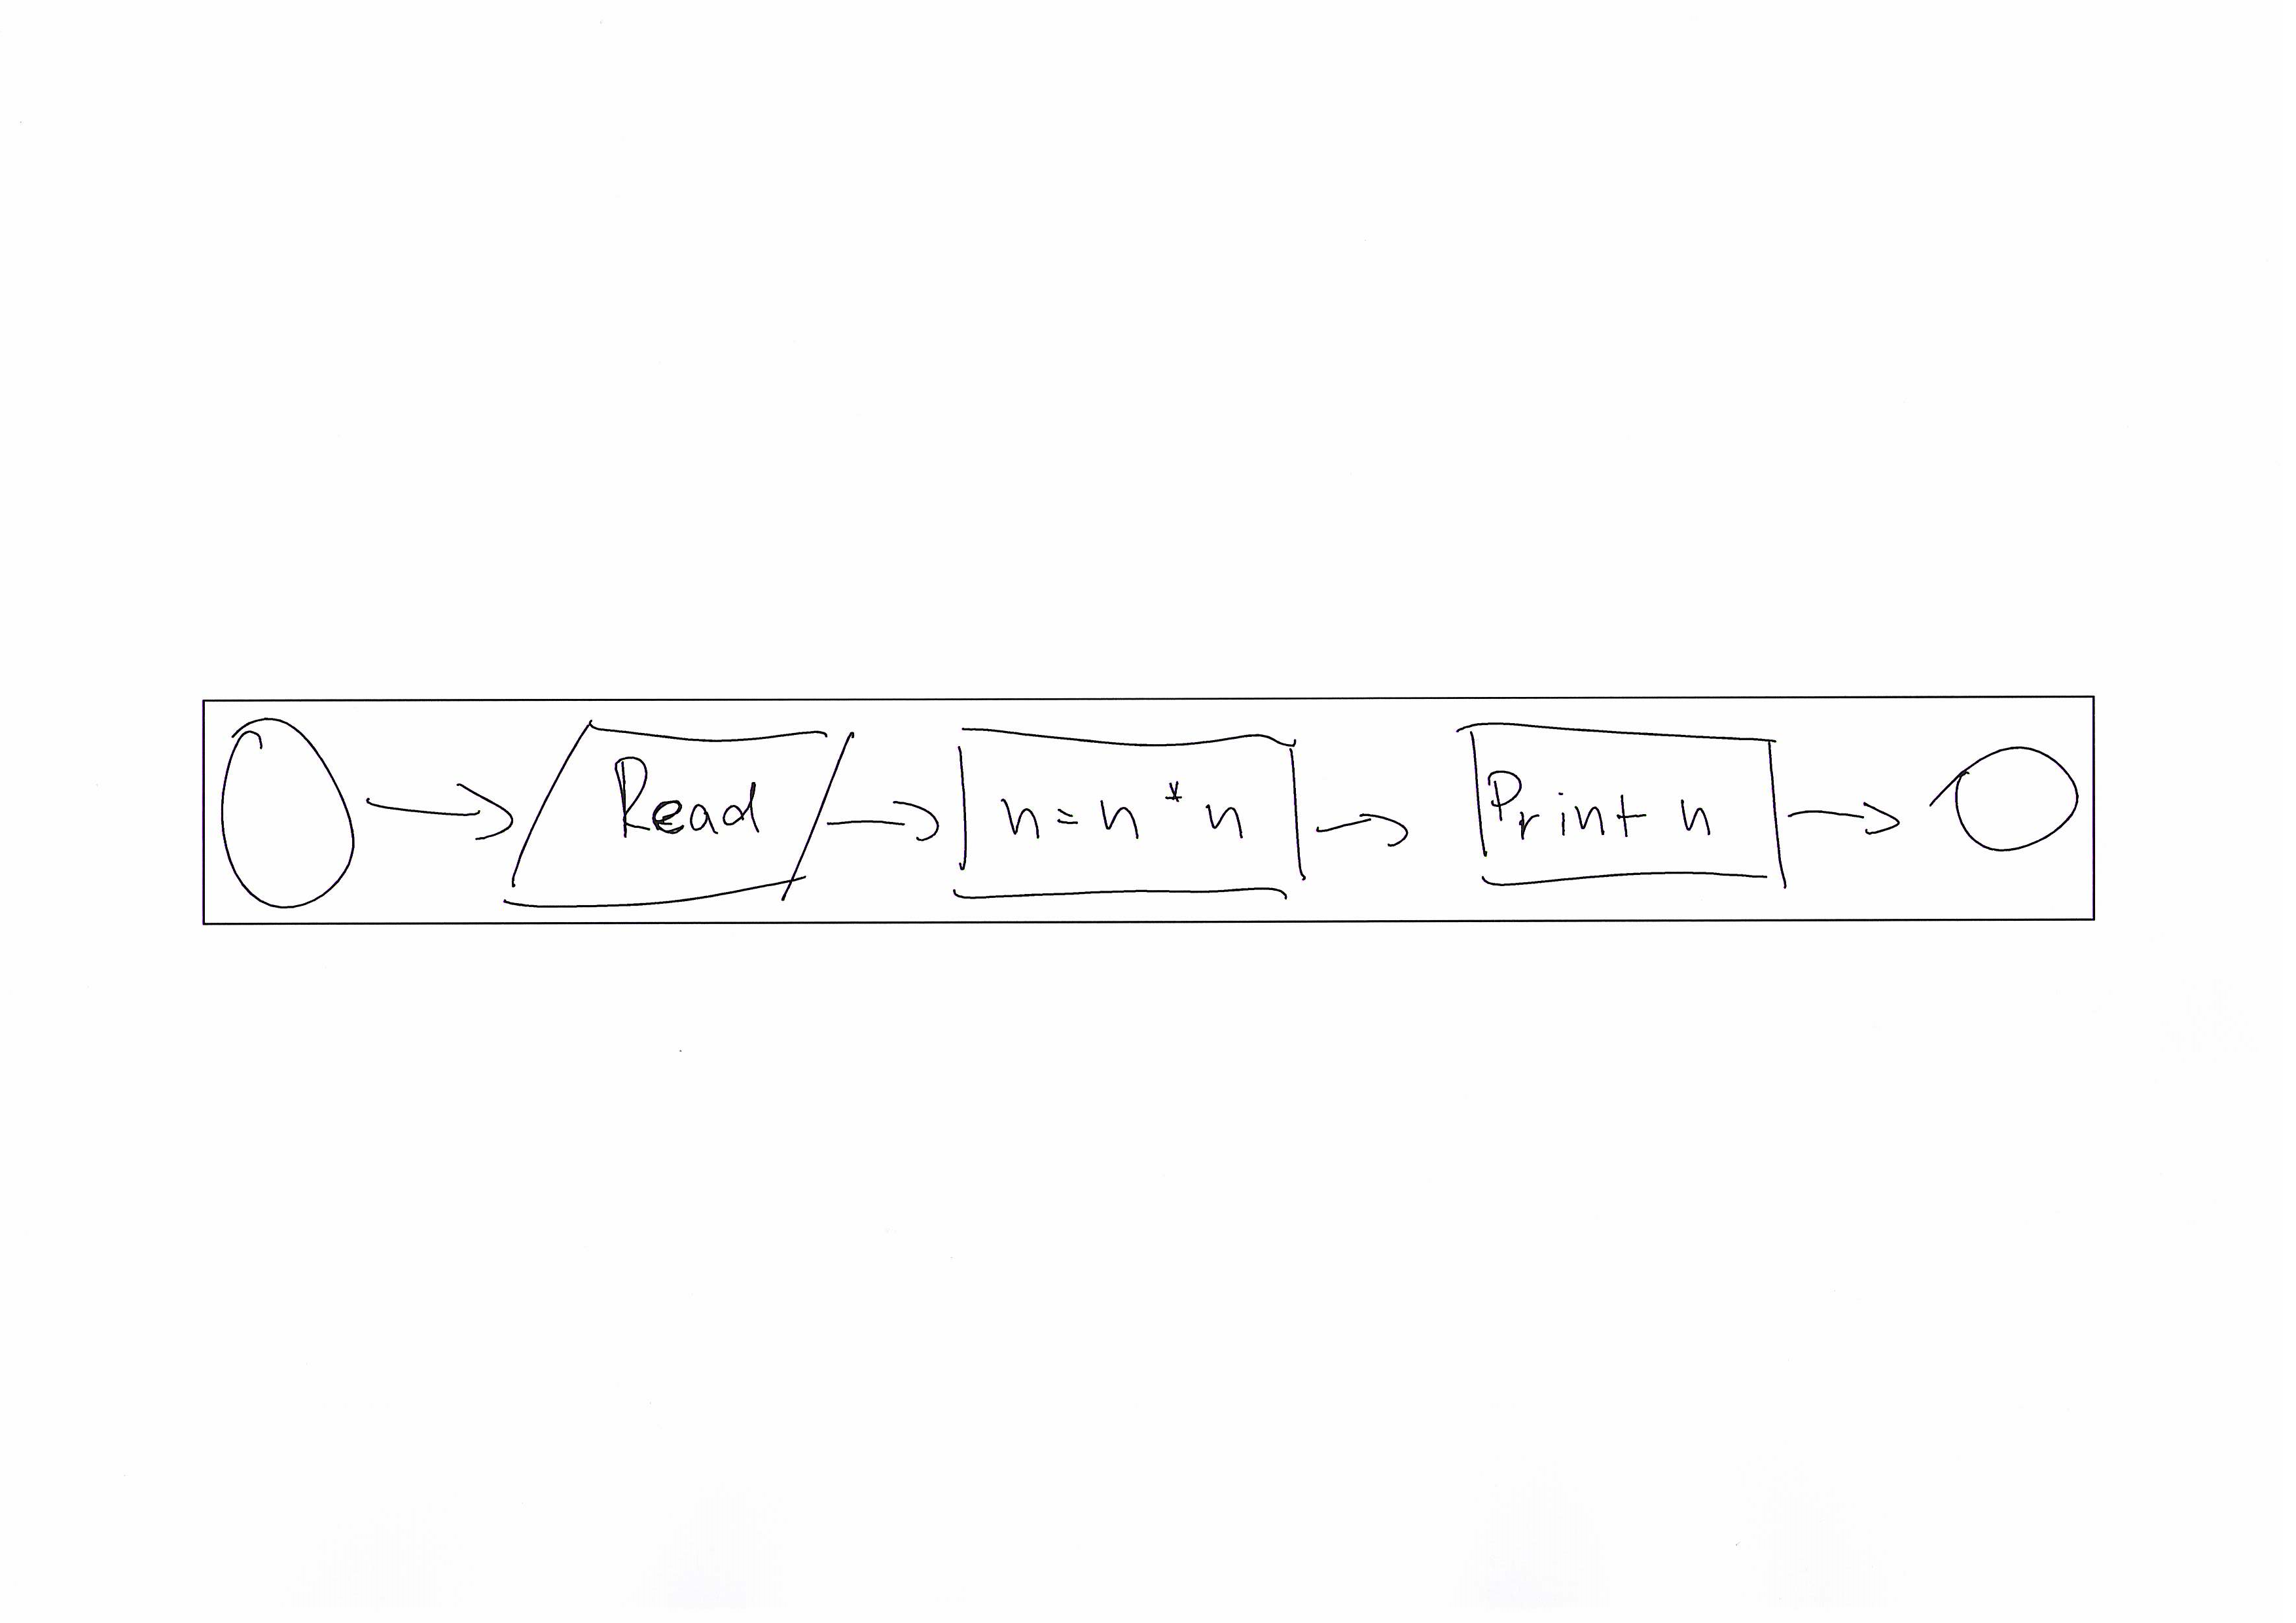 Read
n=n*n
Print n